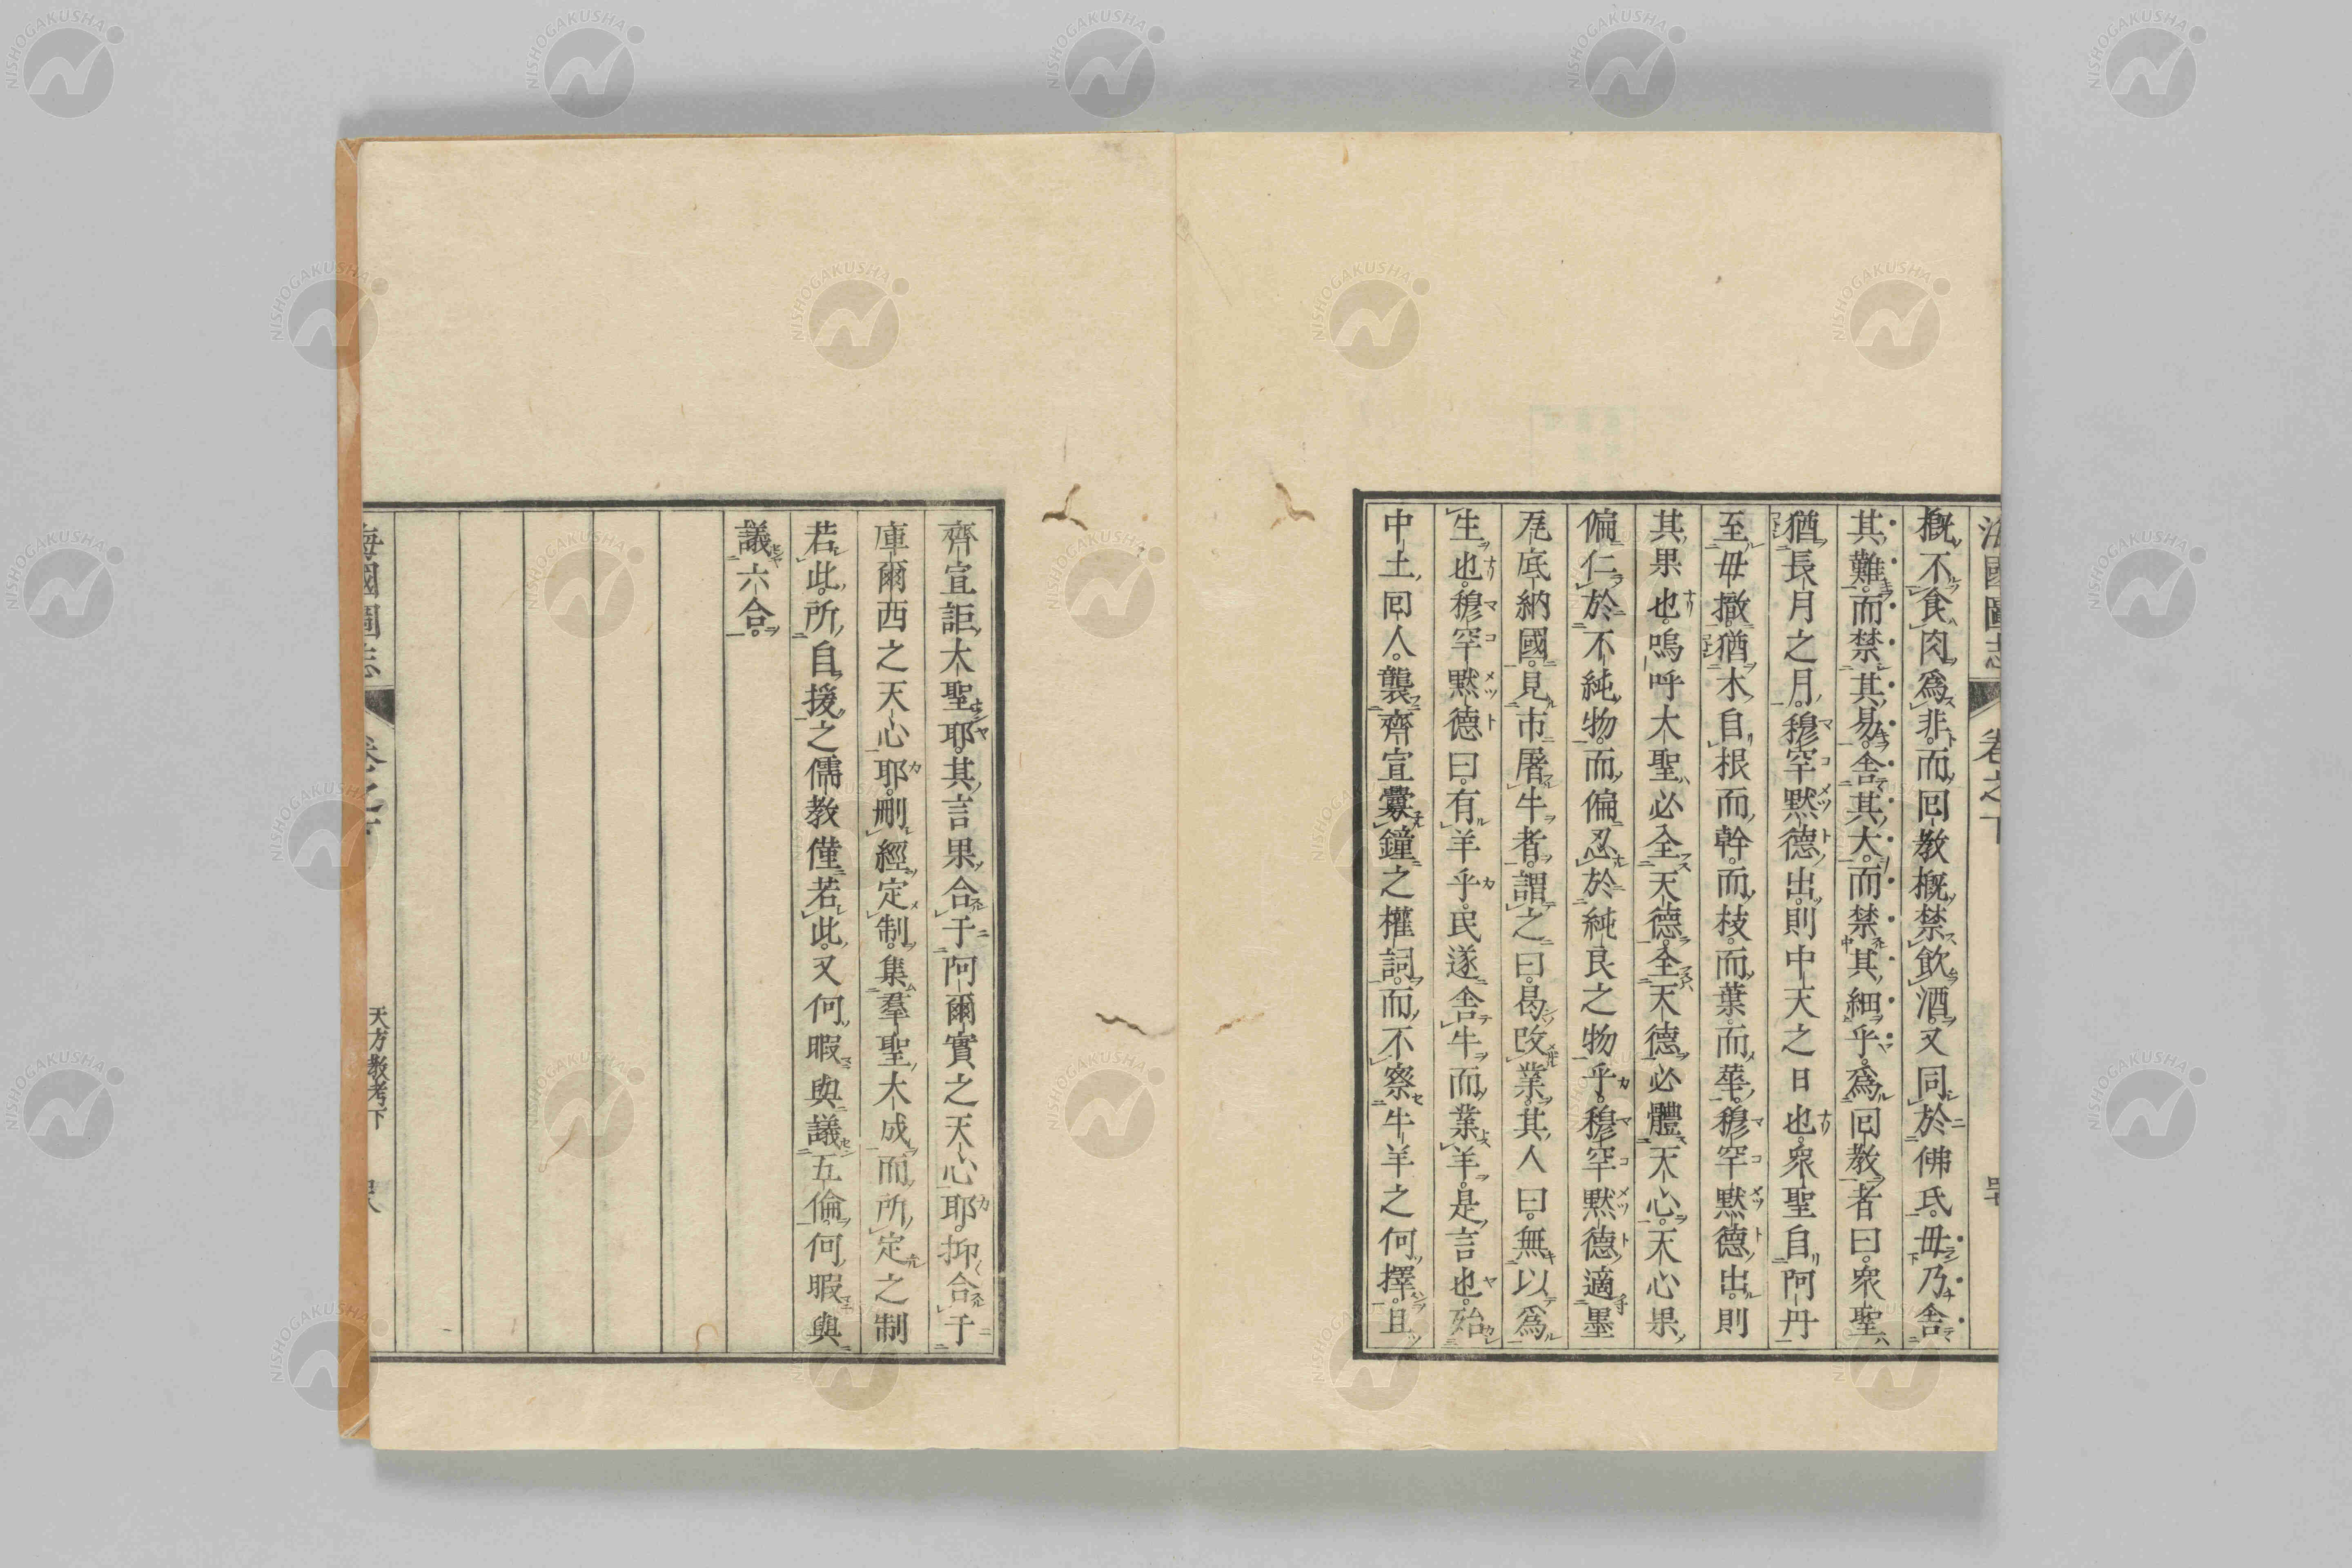 海國圖志 卷之下
槪不食肉爲非而回敎槪禁飮酒又同於佛氏毋乃舍
其難而禁其易舍其大而禁其細乎爲回敎者曰衆聖
猶長月之月穆罕默德出則中天之日也衆聖自阿丹
至毋撒猶木自根而幹而枝而葉而華穆罕默德出則
其果也嗚呼大聖必全天德全天德必體天心天心果
偏仁於不純物而偏忍於純良之物乎穆罕默德適墨
底納國見市屠牛者謂之曰曷改業其人曰無以爲
生也穆罕默德曰有羊乎民遂舍牛而業羊是言也殆
中土回人襲齊宣釁鐘之權詞而不察牛羊之何擇且
齊宣詎大聖耶其言果合于阿爾實之天心耶抑合于
庫爾西之天心耶刪經定制集羣聖大成而所定之制
若此所自援之儒敎僅若此又何暇與議五倫何暇與
議六合
海國圖志 卷之下 天方敎考下
NISHOGAKUSHA